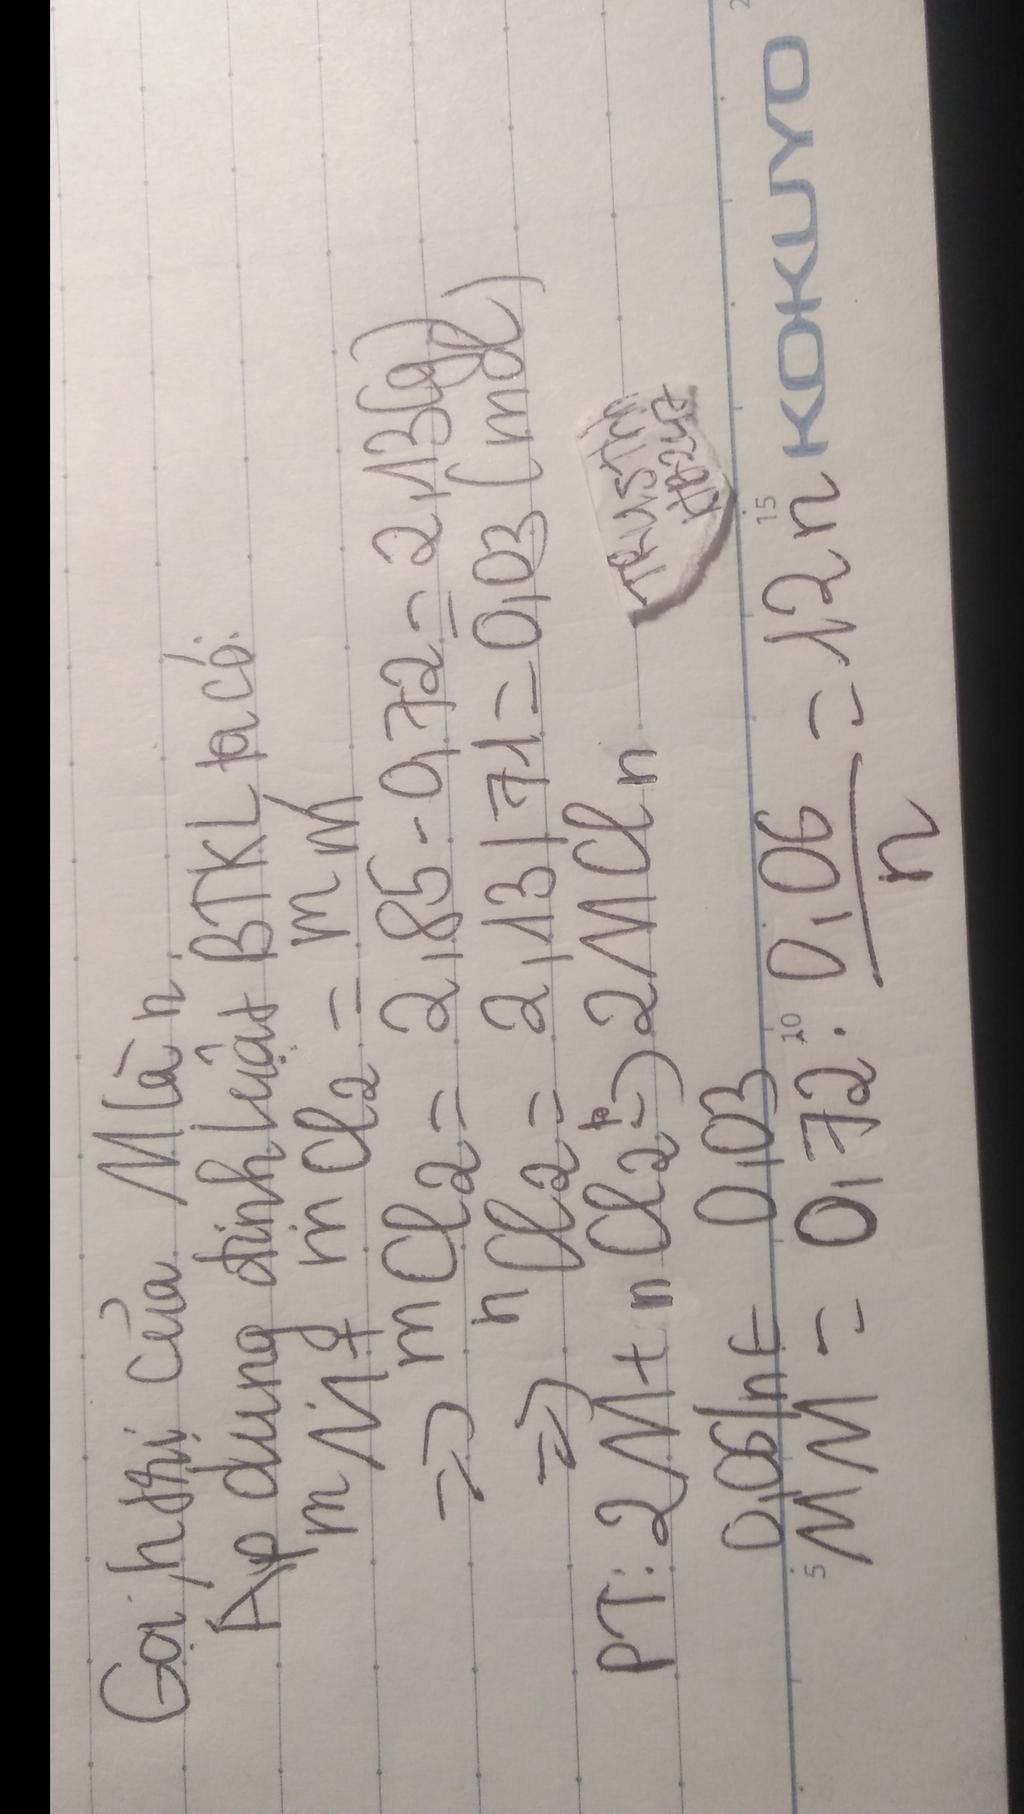 Gọi htrị của M là n.
Áp dụng định luật BTKL ta có:
m M + m Cl2 = m M
=> m Cl2 = 2,85 - 0,72 = 2,13(g)
=> n Cl2 = 2,13/71 = 0,03 (mol)
PT: 2M + n Cl2 => 2MCln
0,06/n ← 0,03
M M = 0,72 : 0,06/n = 12n
TRUSTTM
5 10 15 2
KOKUYO